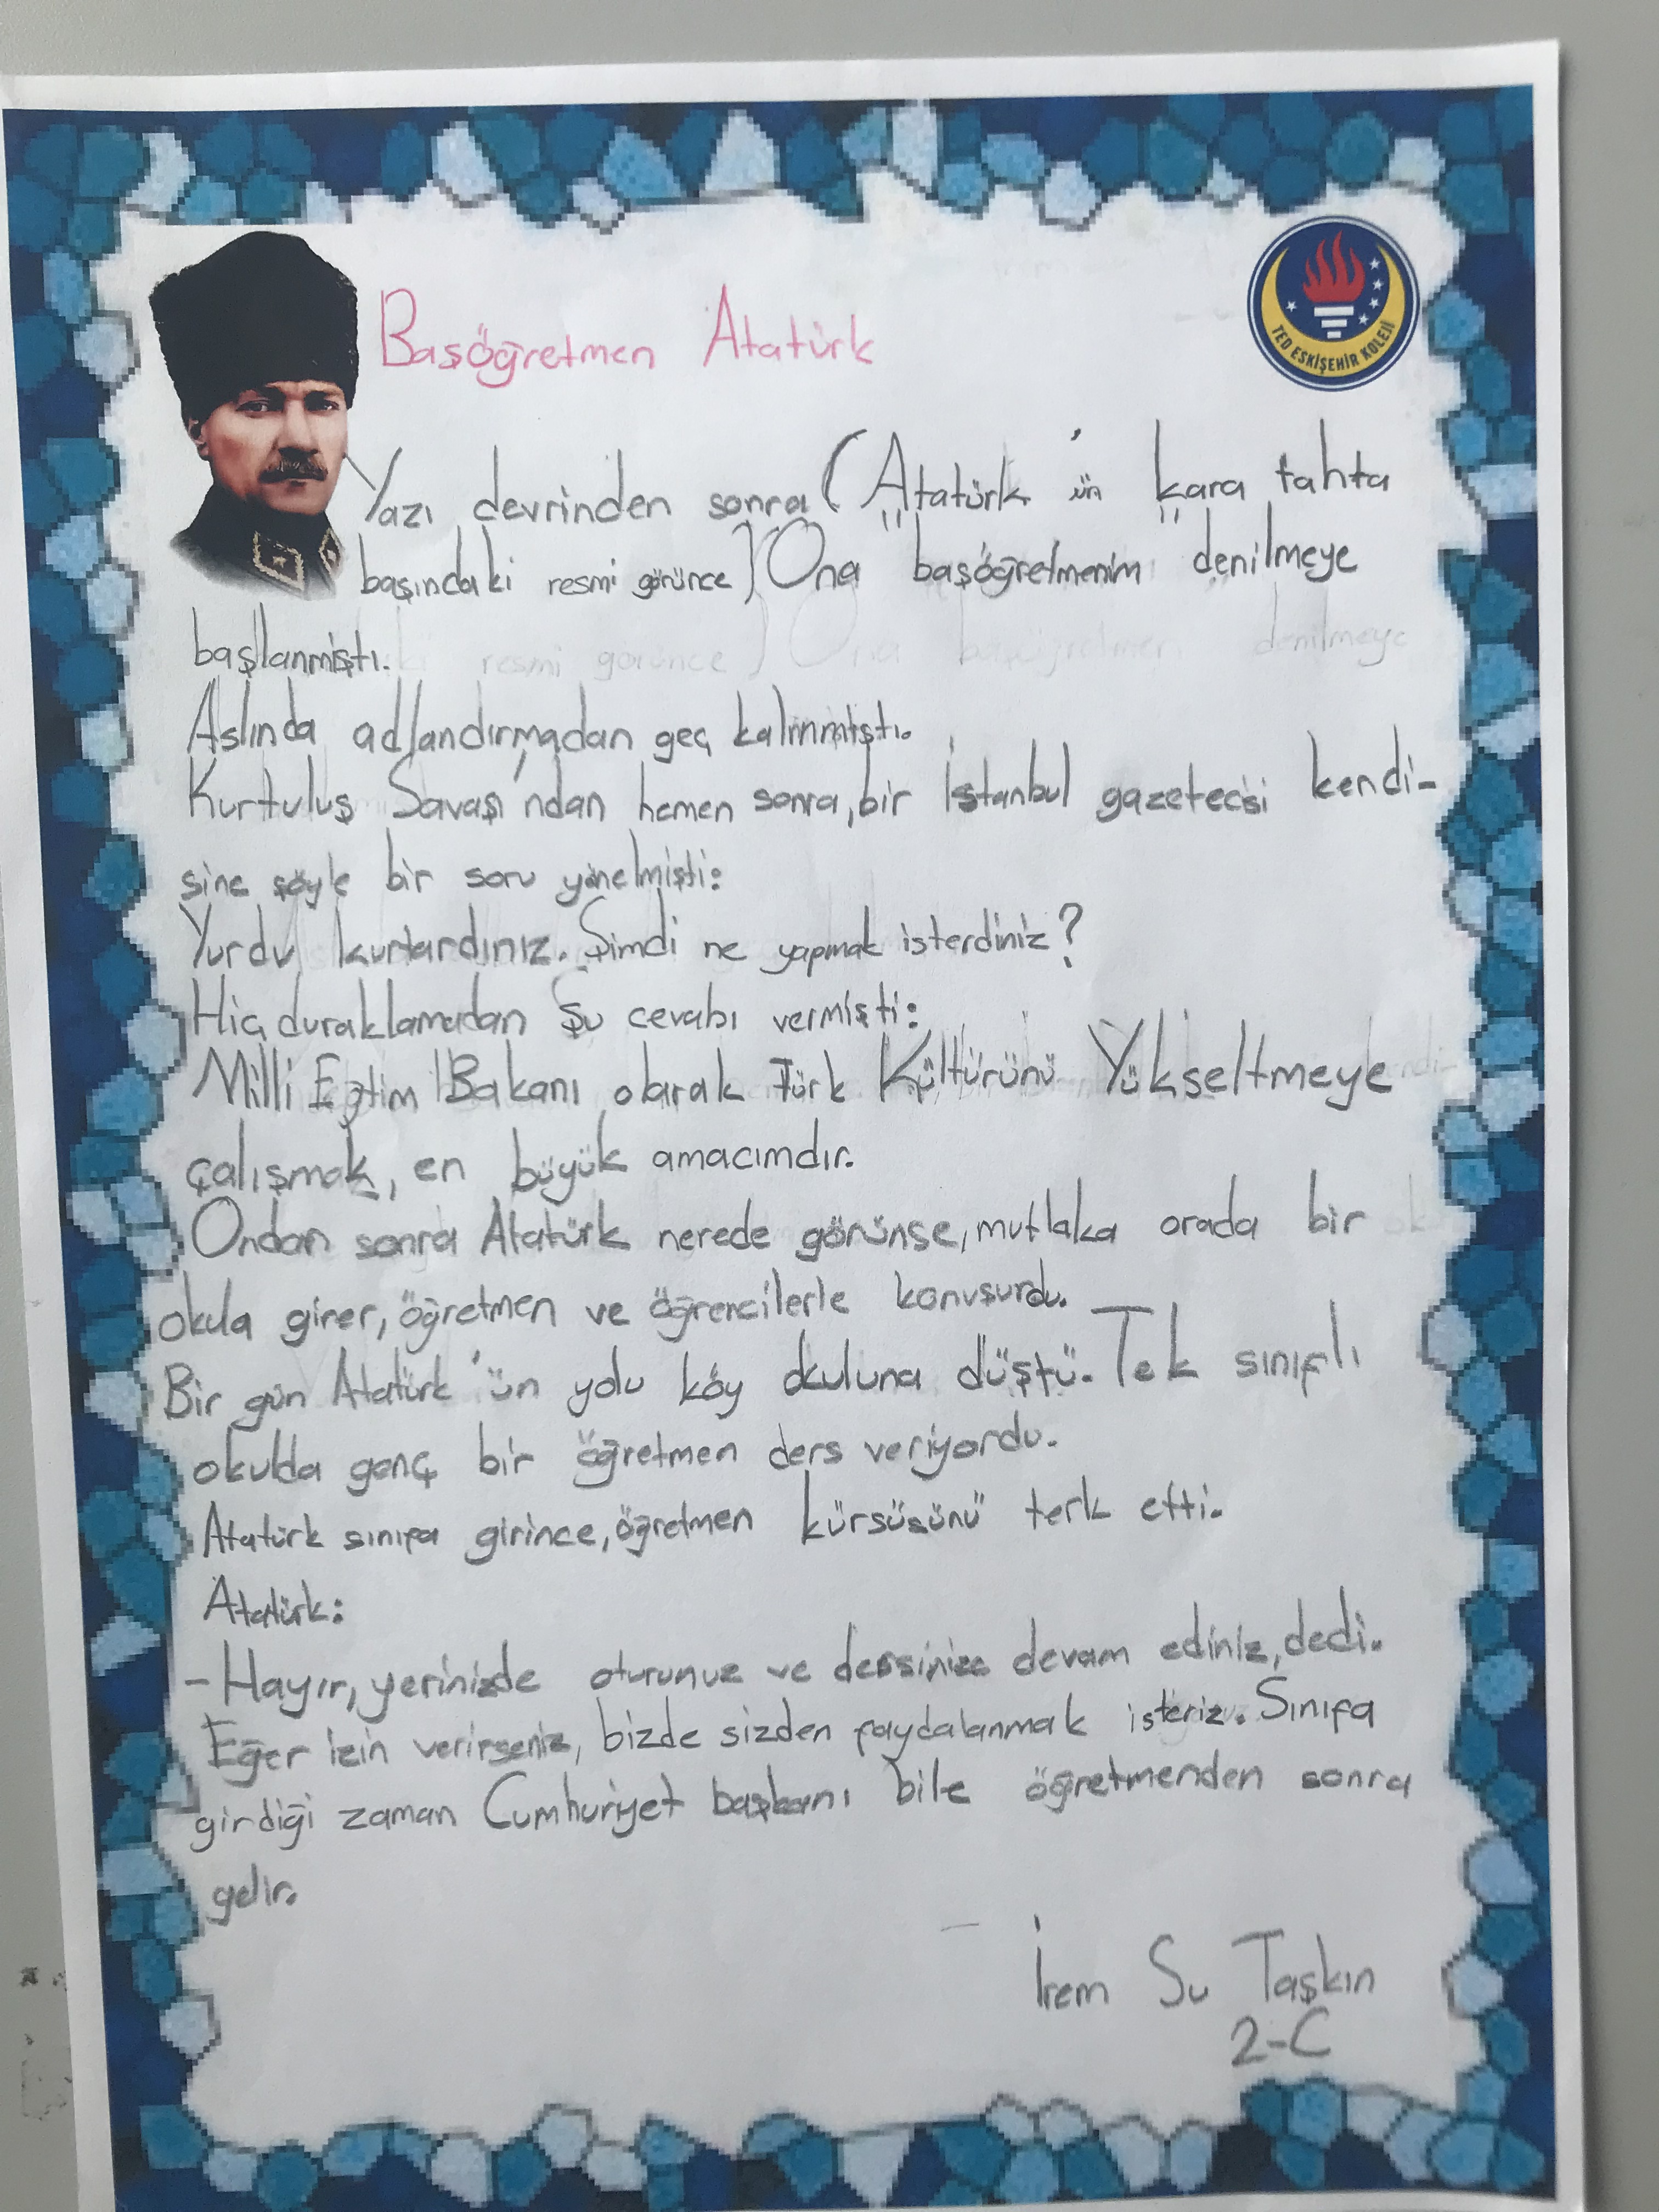 Başöğretmen Atatürk
TED ESKİŞEHİR KOLEJİ
Yazı devrinden sonra (Atatürk'ün kara tahta
başındaki resmi görünce) Ona "başöğretmenim" denilmeye
başlanmıştı.
Aslında adlandırmadan geç kalınmıştı.
Kurtuluş Savaşı'ndan hemen sonra, bir İstanbul gazetecisi kendi-
sine şöyle bir soru yönelmişti:
Yurdu kurtardınız. Şimdi ne yapmak isterdiniz?
Hiç duraklamadan Şu cevabı vermişti:
Milli Eğtim Bakanı olarak Türk Kültürünü Yükseltmeye
çalışmak, en büyük amacımdır.
Ondan sonra Atatürk nerede görünse, mutlaka orada bir
okula girer, öğretmen ve öğrencilerle konuşurdu.
Bir gün Atatürk'ün yolu köy okuluna düştü. Tek sınıflı
okulda genç bir öğretmen ders veriyordu.
Atatürk sınıfa girince, öğretmen kürsüsünü terk etti.
Atatürk:
- Hayır, yerinizde oturunuz ve dersinize devam ediniz, dedi.
Eğer izin verirseniz, bizde sizden faydalanmak isteriz. Sınıfa
girdiği zaman Cumhuriyet başkanı bile öğretmenden sonra
gelir.
İrem Su Taşkın
2-C